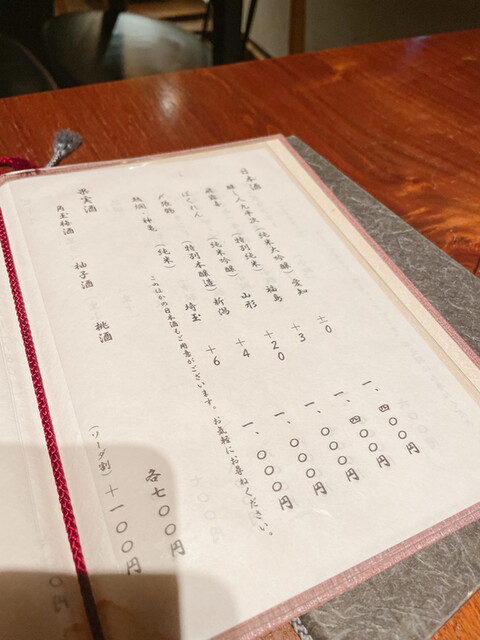 日本酒
醸し人九平次（純米大吟醸）愛知 ±0 一、四〇〇円
飛露喜（特別純米）福島 +3 一、四〇〇円
ばくれん（純米吟醸）山形 +20 一、〇〇〇円
〆張鶴（特別本醸造）新潟 +4 一、〇〇〇円
熱燗・神亀（純米）埼玉 +6 一、〇〇〇円
このほかの日本酒もご用意がございます。お気軽にお尋ねください。
果実酒
角玉梅酒 柚子酒 桃酒 各七〇〇円
（ソーダ割）+一〇〇円